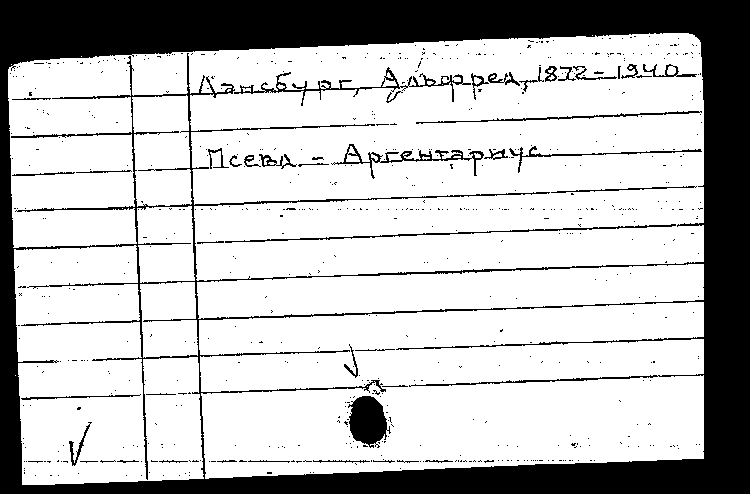 Лансбург, Альфред, 1872-1940
Псевд - Аргентариус